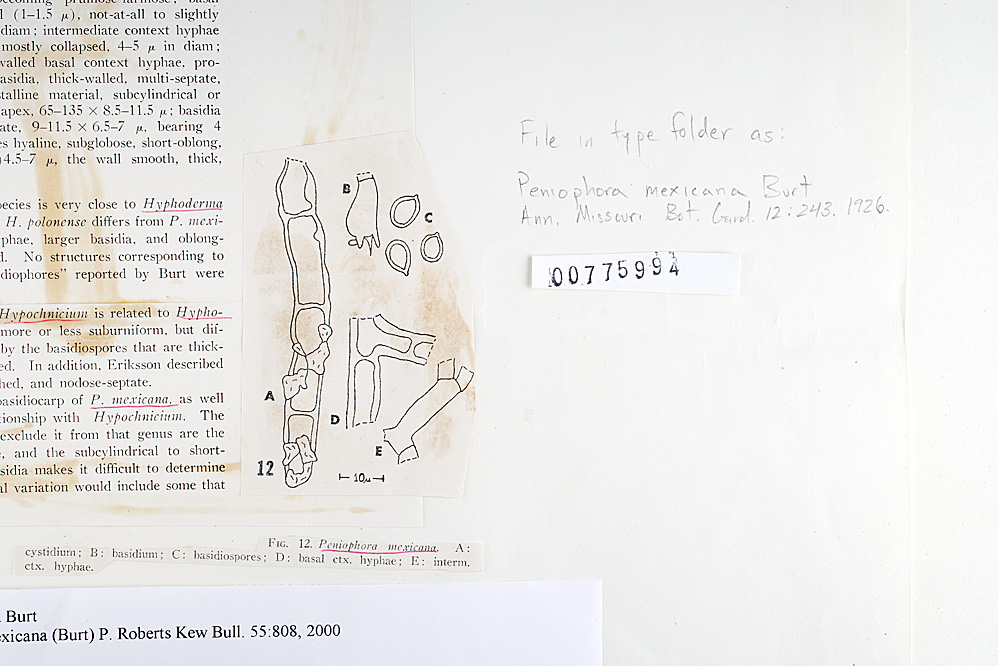 l (1–1.5 μ), not-at-all to slightly
diam; intermediate context hyphae
mostly collapsed, 4–5 μ in diam;
walled basal context hyphae, pro-
asidia, thick-walled, multi-septate,
stalline material, subcylindrical or
apex, 65–135 × 8.5–11.5 μ; basidia
ate, 9–11.5 × 6.5–7 μ, bearing 4
es hyaline, subglobose, short-oblong,
)4.5–7 μ, the wall smooth, thick,
pecies is very close to Hyphoderma
H. polonense differs from P. mexi-
phae, larger basidia, and oblong-
d. No structures corresponding to
diophores” reported by Burt were
Hypochnicium is related to Hypho-
more or less suburniform, but dif-
by the basidiospores that are thick-
ed. In addition, Eriksson described
hed, and nodose-septate.
basidiocarp of P. mexicana, as well
tionship with Hypochnicium. The
exclude it from that genus are the
e, and the subcylindrical to short-
sidia makes it difficult to determine
al variation would include some that
A
B
C
D
E
12
10μ
FIG. 12. Peniophora mexicana. A:
cystidium; B: basidium; C: basidiospores; D: basal ctx. hyphae; E: interm.
ctx. hyphae.
Burt
exicana (Burt) P. Roberts Kew Bull. 55:808, 2000
File in type folder as:
Peniophora mexicana Burt
Ann. Missouri Bot. Gard. 12:243. 1926.
00775994